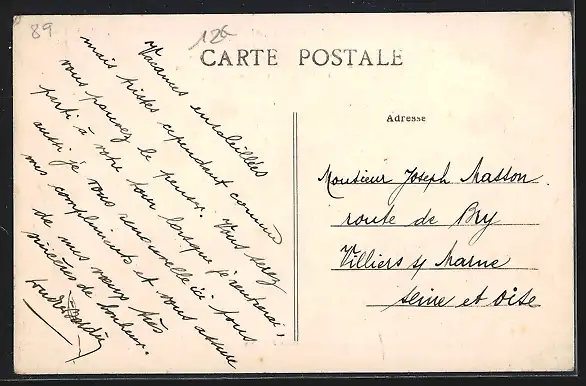 89
12€
CARTE POSTALE
Vacances ensoleillées
mais tristes cependant comme
vous pouvez le penser. Vous serez
parti à votre tour lorsque je rentrerai,
aussi je vous renouvelle ici tous
mes compliments et vous assure
de mes vœux très
sincères de bonheur.
Adresse
Monsieur Joseph Masson.
route de Bry
Villiers s/ Marne
Seine et Oise